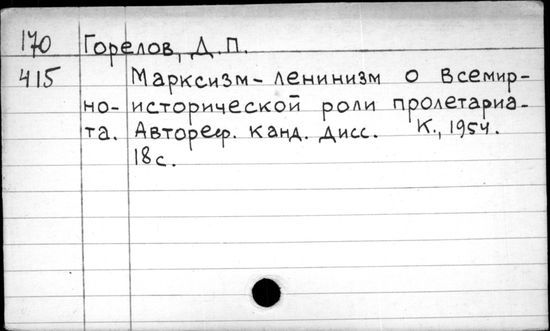 170 Горелов, Д.П.
415 Марксизм-ленинизм о всемир-
но-исторической роли пролетариа-
та. Автореф. канд. дисс. К., 1954.
18с.